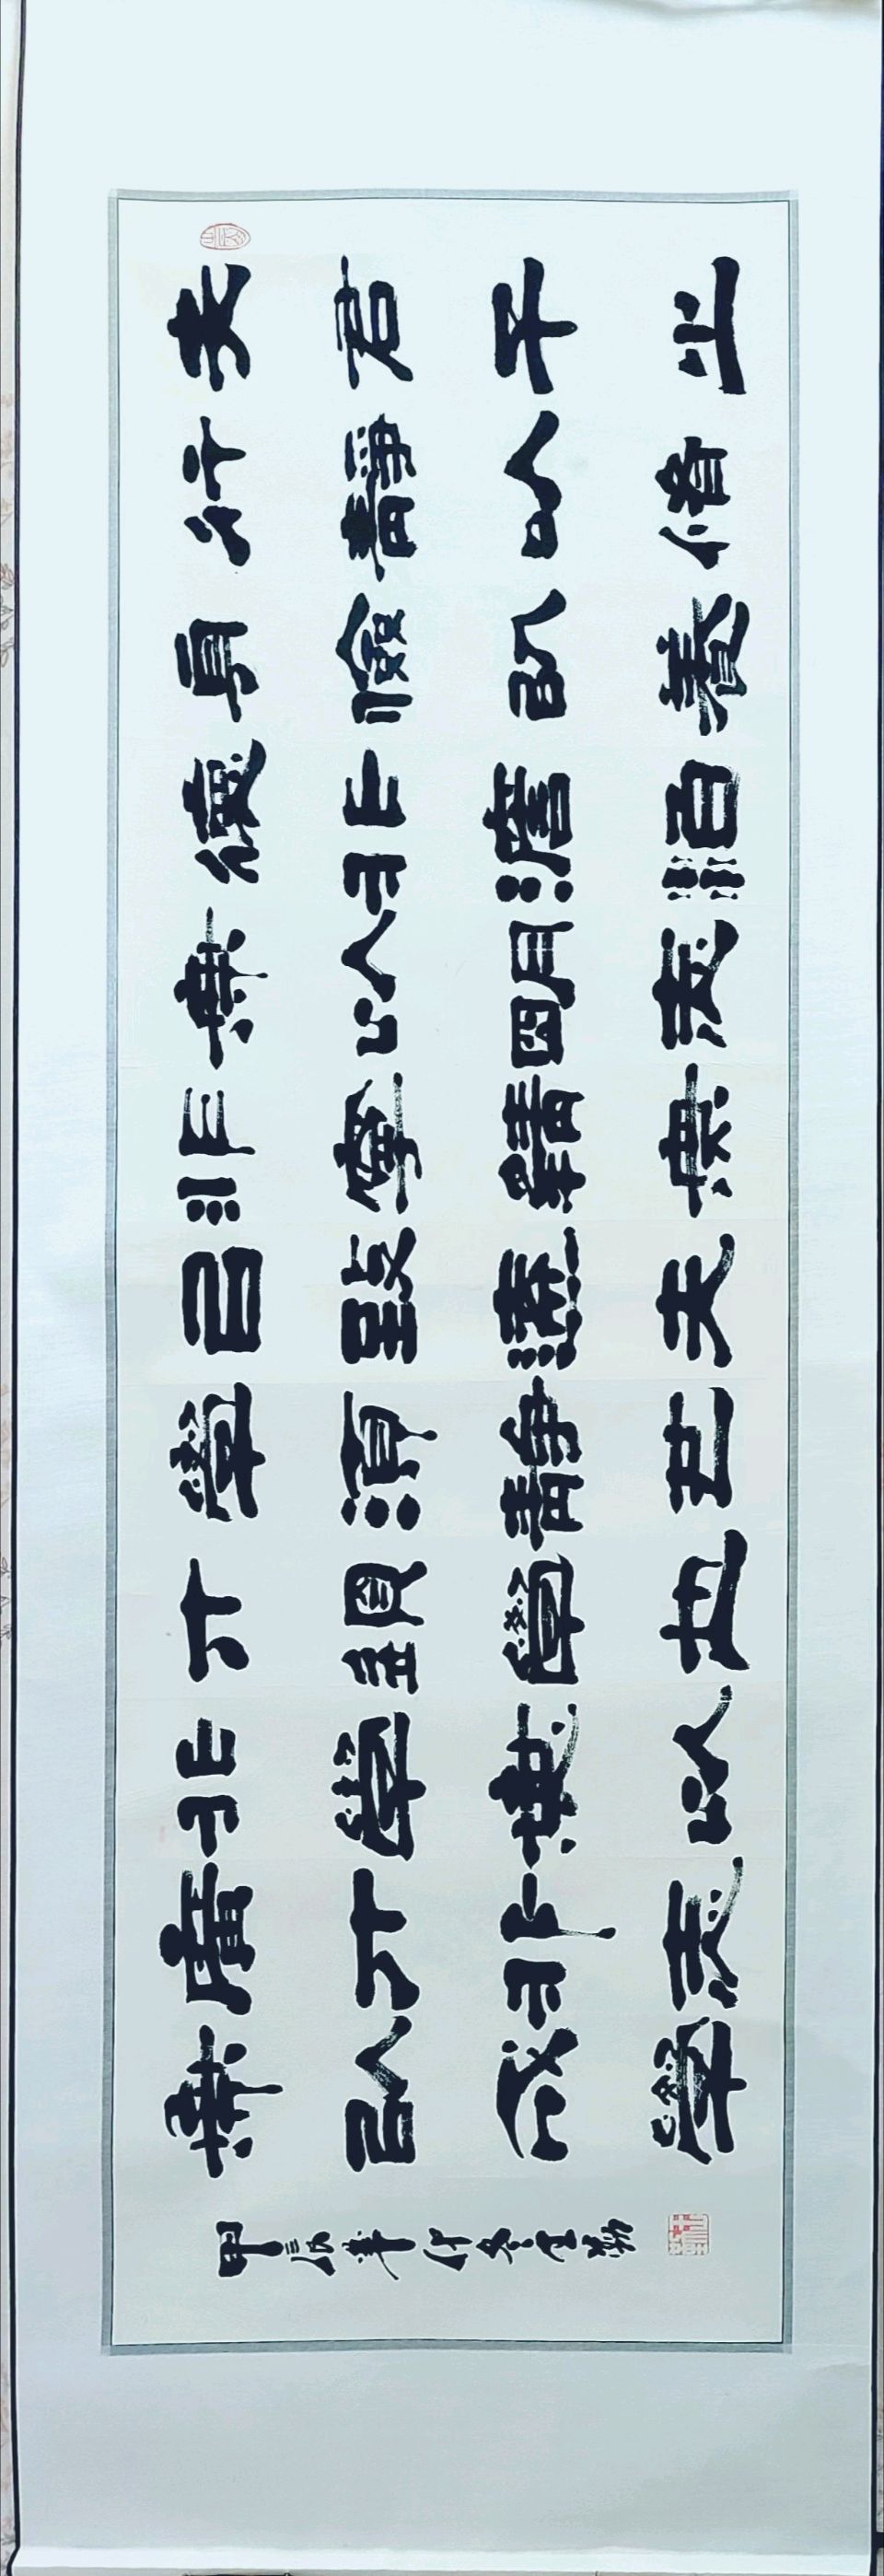 夫君子之
行靜以脩
身儉以養
德非澹泊
無以明志
非寧靜無
以致遠夫
學須靜也
才須學也
非學無以
廣才非志
無以成學
甲辰年仲冬